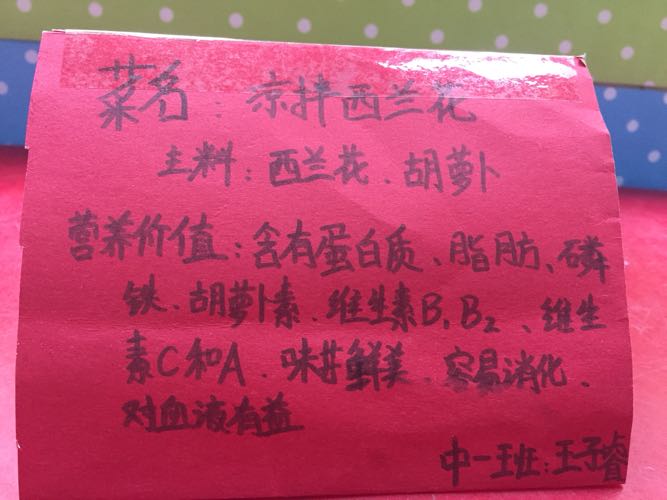 菜名：凉拌西兰花
主料：西兰花、胡萝卜
营养价值：含有蛋白质、脂肪、磷
铁、胡萝卜素、维生素B₁B₂、维生
素C和A、味甘鲜美、容易消化、
对血液有益
中一班：王子睿